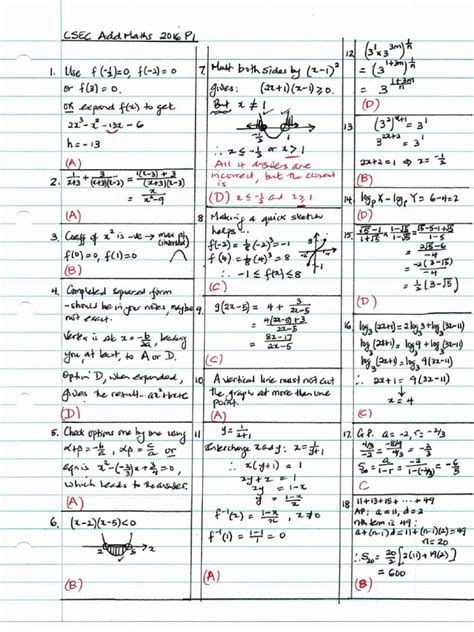 CSEC Add Maths 2016 P1
1. Use f(-½)=0, f(-2)=0
or f(3) = 0.
OR expand f(x) to get
2x³-x²-13x-6
h=-13
(A)
2. 1/(x+3) + 3/((x+3)(x-3)) = (1(x-3)+3)/((x+3)(x-3))
= x/(x²-9)
(A)
3. Coeff of x² is -ve → max pt
(inverted)
f(0)=0, f(1)=0
(B)
4. Completed squared form
-should be in your notes, maybe
not exact.
Vertex is at x = -b/2a, leading
you, at best, to A or D.
Option D, when expanded,
gives the result ax²+bx+c
(D)
5. Check options one by one using
α+β = -b/a, αβ = c/a or
which leads to the answer.
(A)
6. (x-2)(x-5)<0
2 5 x
(B)
7. Mult both sides by (x-1)²
gives: (2x+1)(x-1)≥0.
But x ≠ 1
∴ x ≤ -½ or x > 1
All 4 answers are
incorrect, but the closest
is
(D) x ≤ -½ and x ≥ 1
8 Making a quick sketch
helps...
∴ -1 ≤ f(x) ≤ 8
(C)
9 g(2x-5) = 4 + 3/(2x-5)
= (4(2x-5)+3)/(2x-5)
= (8x-17)/(2x-5)
(C)
10 A vertical line must not cut
the graph at more than one
point.
(A)
11 y = 1/(x+1)
Interchange x and y: x = 1/(y+1)
∴ x(y+1) = 1
xy + x = 1
xy = 1-x
y = (1-x)/x
f⁻¹(x) = (1-x)/x, x≠0
f⁻¹(1) = (1-1)/1 = 0
(A)
12 (3¹ x 3^3m)^1/n
= (3^1+3m)^1/n
= 3^(1+3m)/n
(D)
13 (3²)^x+1 = 3¹
3^2x+2 = 3¹
2x+2=1 ⇒ x = -½
(B)
14 log_p X - log_p Y = 6-4=2
(B)
15. (√5-1)/(1+√5) x (1-√5)/(1-√5) = (√5-5-1+√5)/(1-5)
= (2√5-6)/-4
= -2(3-√5)/-4
= ½(3-√5)
(D)
16. log₃(2x+1) = 2log₃3 + log₃(3x-11)
log₃(2x+1) = log₃9 + log₃(3x-11)
log₃(2x+1) = log₃9(3x-11)
∴ 2x+1 = 9(3x-11)
x = 4
(C)
17. G.P. a=-2, r=-2/3
(C)
18 11+13+15+ ... +49
AP: a=11, d=2
nth term is 49:
a+(n-1)d = 11+(n-1)(2)=49
n=20
∴ S₂₀ = 20/2 [2(11)+19(2)]
= 600
(B)